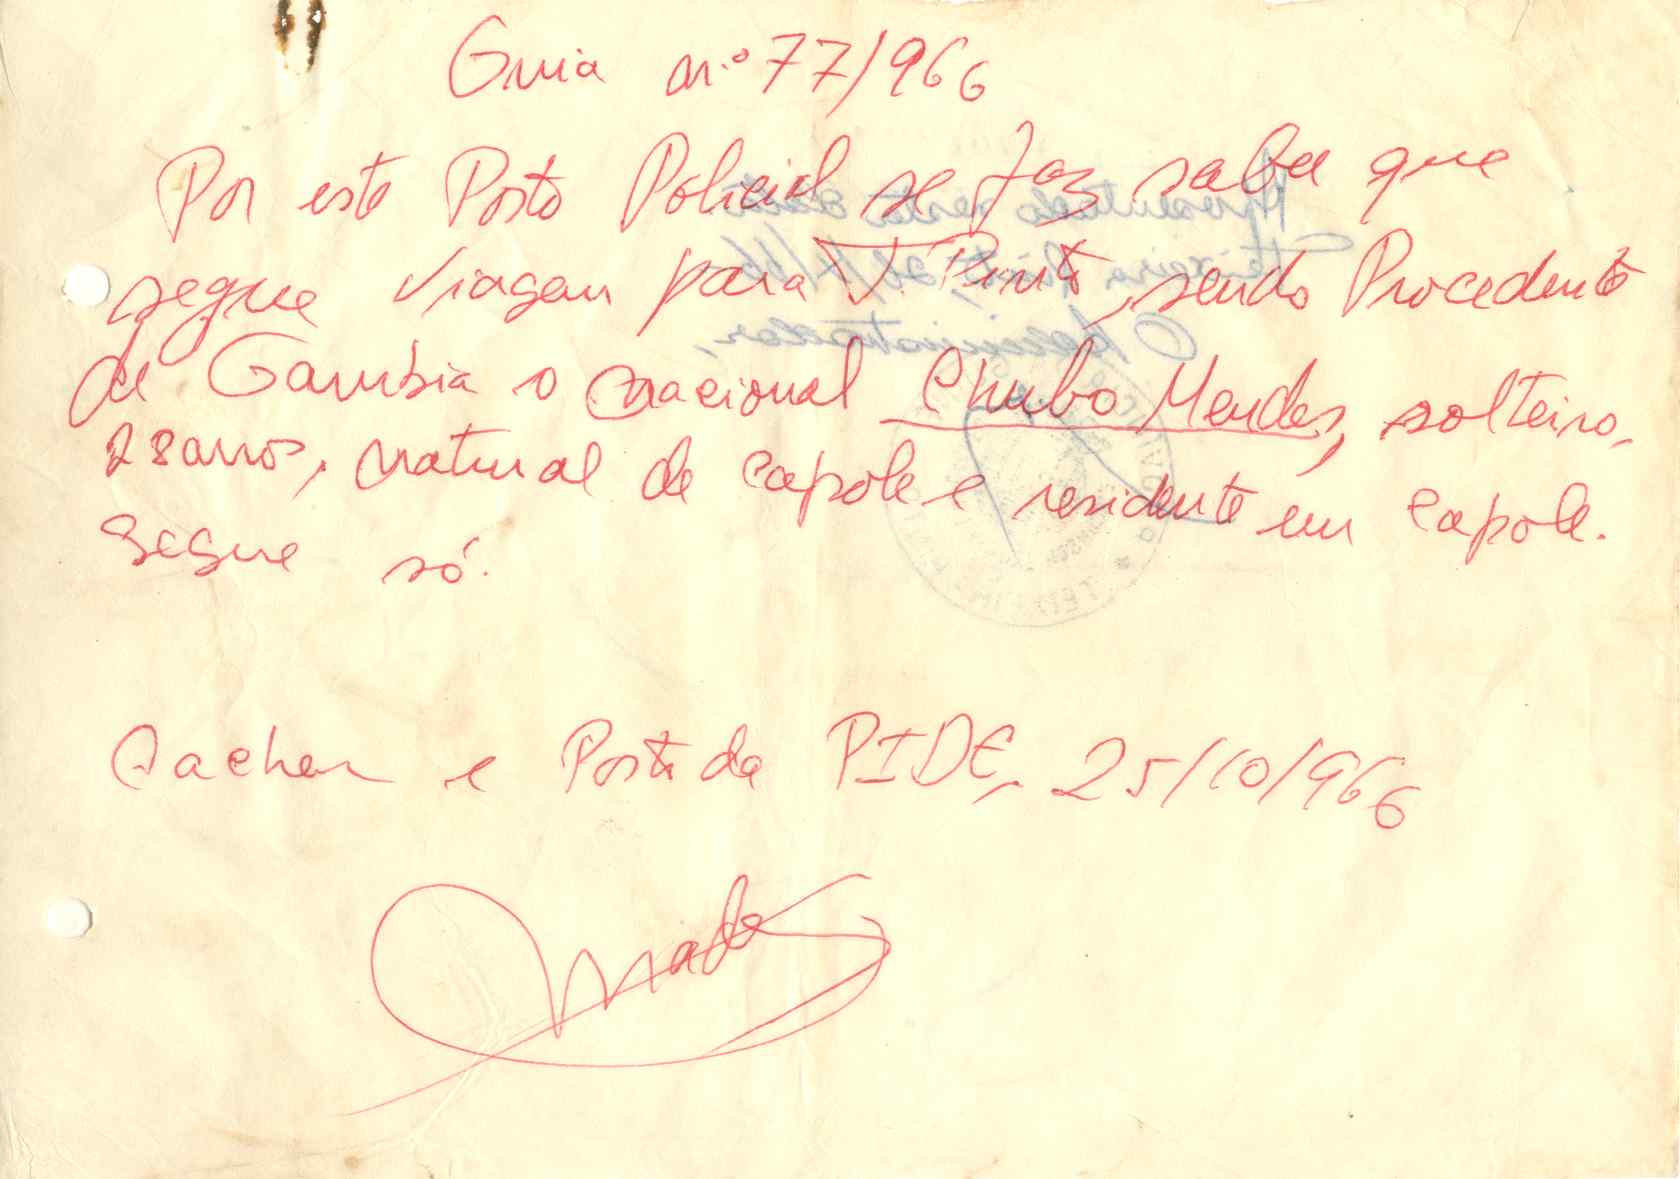 Guia n.º 77/966
Por este Posto Policial se faz saber que
segue viagem para T. Pinto, sendo Procedente
de Gambia o nacional Chubo Mendes, solteiro,
28 anos, natural de Capole e residente em Capole.
Segue só.
Cacheu e Posto da PIDE, 25/10/966